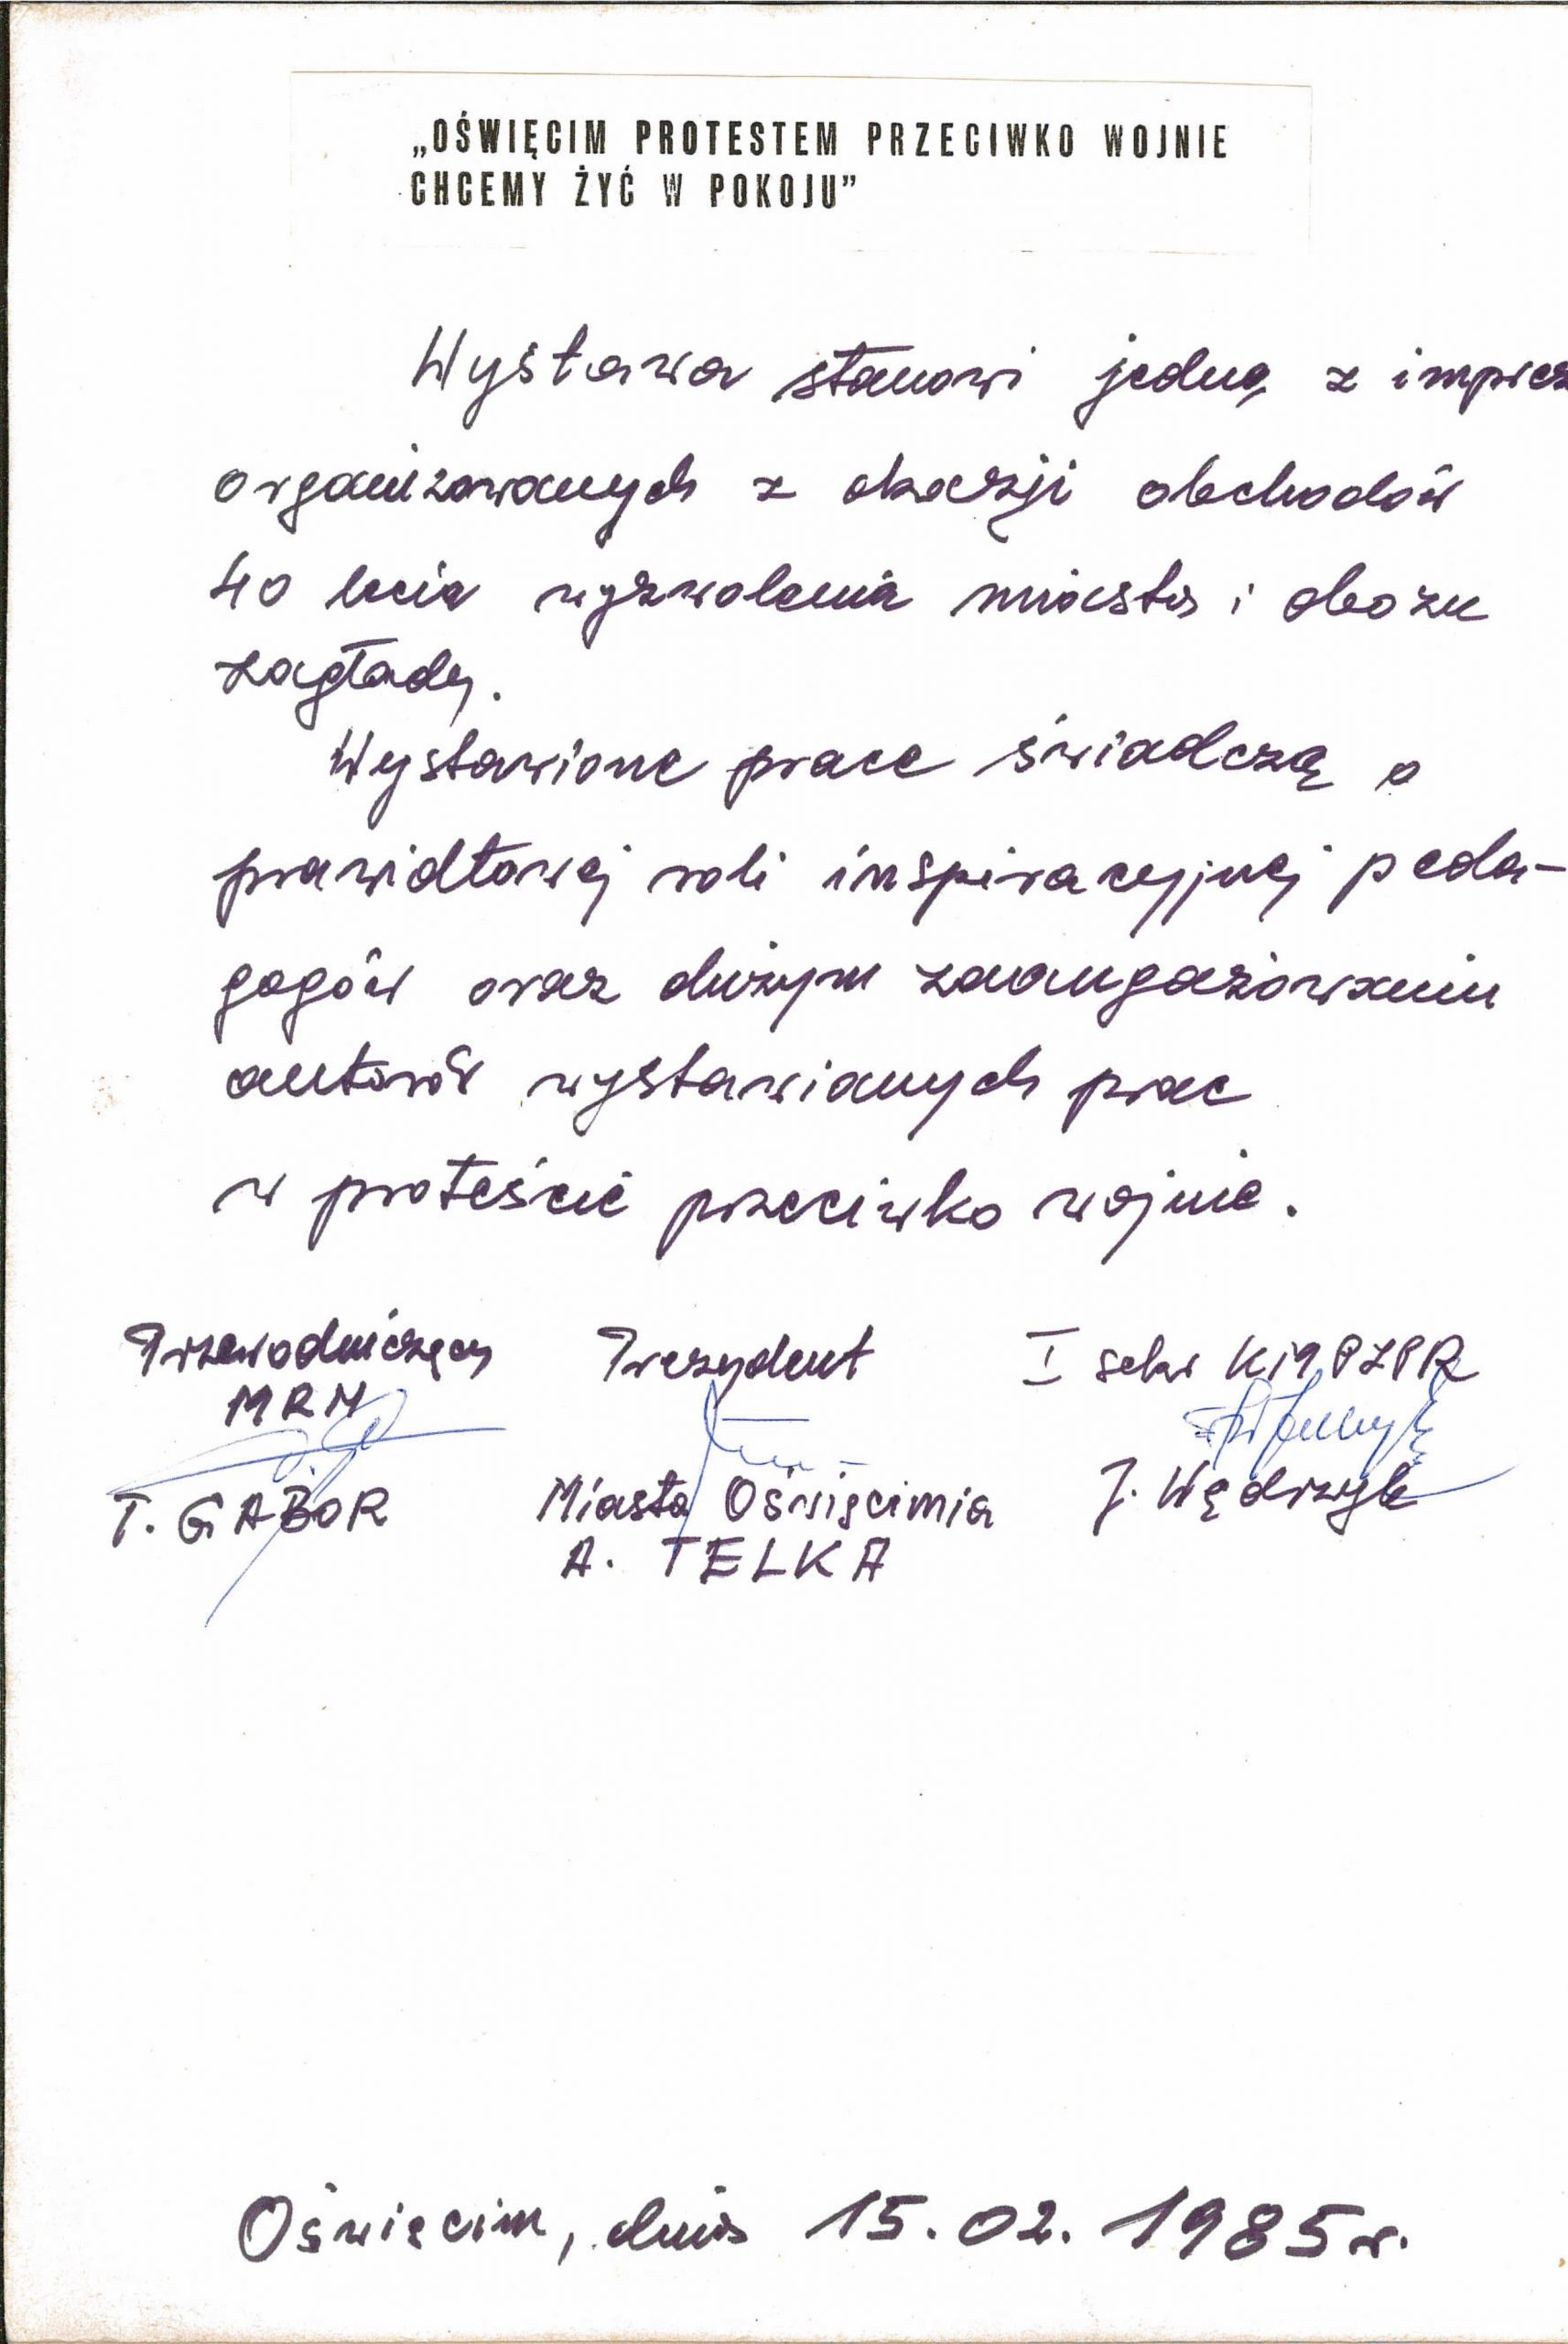 „OŚWIĘCIM PROTESTEM PRZECIWKO WOJNIE
CHCEMY ŻYĆ W POKOJU”
Wystawa stanowi jedną z imprez
organizowanych z okazji obchodów
40 lecia wyzwolenia miasta i obozu
zagłady.
Wystawione prace świadczą o
prawidłowej roli inspiracyjnej peda-
gogów oraz dużym zaangażowaniu
autorów wystawianych prac
w proteście przeciwko wojnie.
Przewodniczący Prezydent I sekr KM PZPR
MRN
T. GABOR Miasta Oświęcimia J. Wędrzyk
A. TELKA
Oświęcim, dnia 15.02.1985 r.